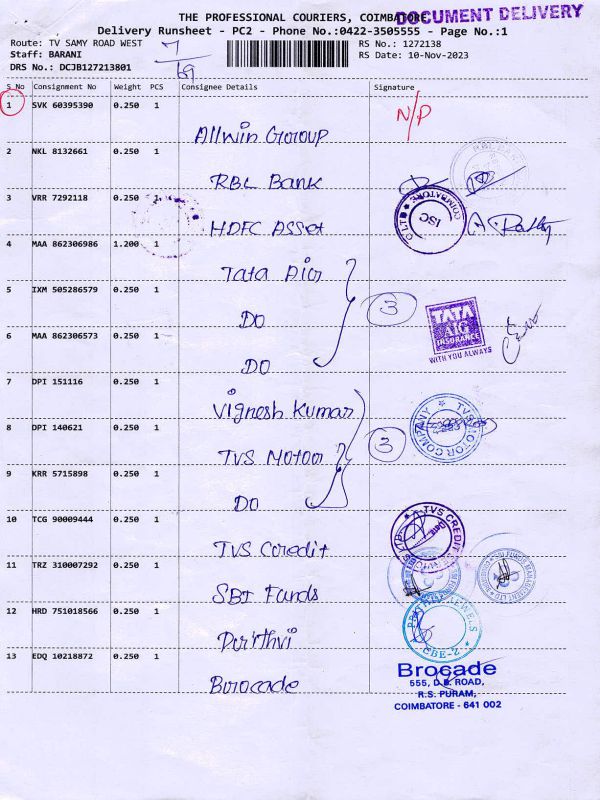 THE PROFESSIONAL COURIERS, COIMBATORE
DOCUMENT DELIVERY
Delivery Runsheet - PC2 - Phone No.:0422-3505555 - Page No.:1
Route: TV SAMY ROAD WEST
RS No.: 1272138
Staff: BARANI
RS Date: 10-Nov-2023
DRS No.: DCJB127213801
7/69
S No Consignment No Weight PCS Consignee Details Signature
1 SVK 60395390 0.250 1 Allwin Goroup N/P
2 NKL 8132661 0.250 1 RBL Bank
3 VRR 7292118 0.250 1 HDFC Asset
COIMBATORE
ISC
4 MAA 862306986 1.200 1 Tata Aig
5 IXM 505286579 0.250 1 DO
3
TATA
AIG
INSURANCE
WITH YOU ALWAYS
6 MAA 862306573 0.250 1 DO
7 DPI 151116 0.250 1 Vignesh Kumar
8 DPI 140621 0.250 1 TVS Motor
3
TVS MOTOR COMPANY
9 KRR 5715898 0.250 1 DO
10 TCG 90009444 0.250 1 TVS Credit
TVS CREDIT
11 TRZ 310007292 0.250 1 SBI Funds
12 HRD 751018566 0.250 1 Prithvi
JEWELS
CBE-2
13 EDQ 10218872 0.250 1 Borocade
Brocade
555, D.B. ROAD,
R.S. PURAM,
COIMBATORE - 641 002